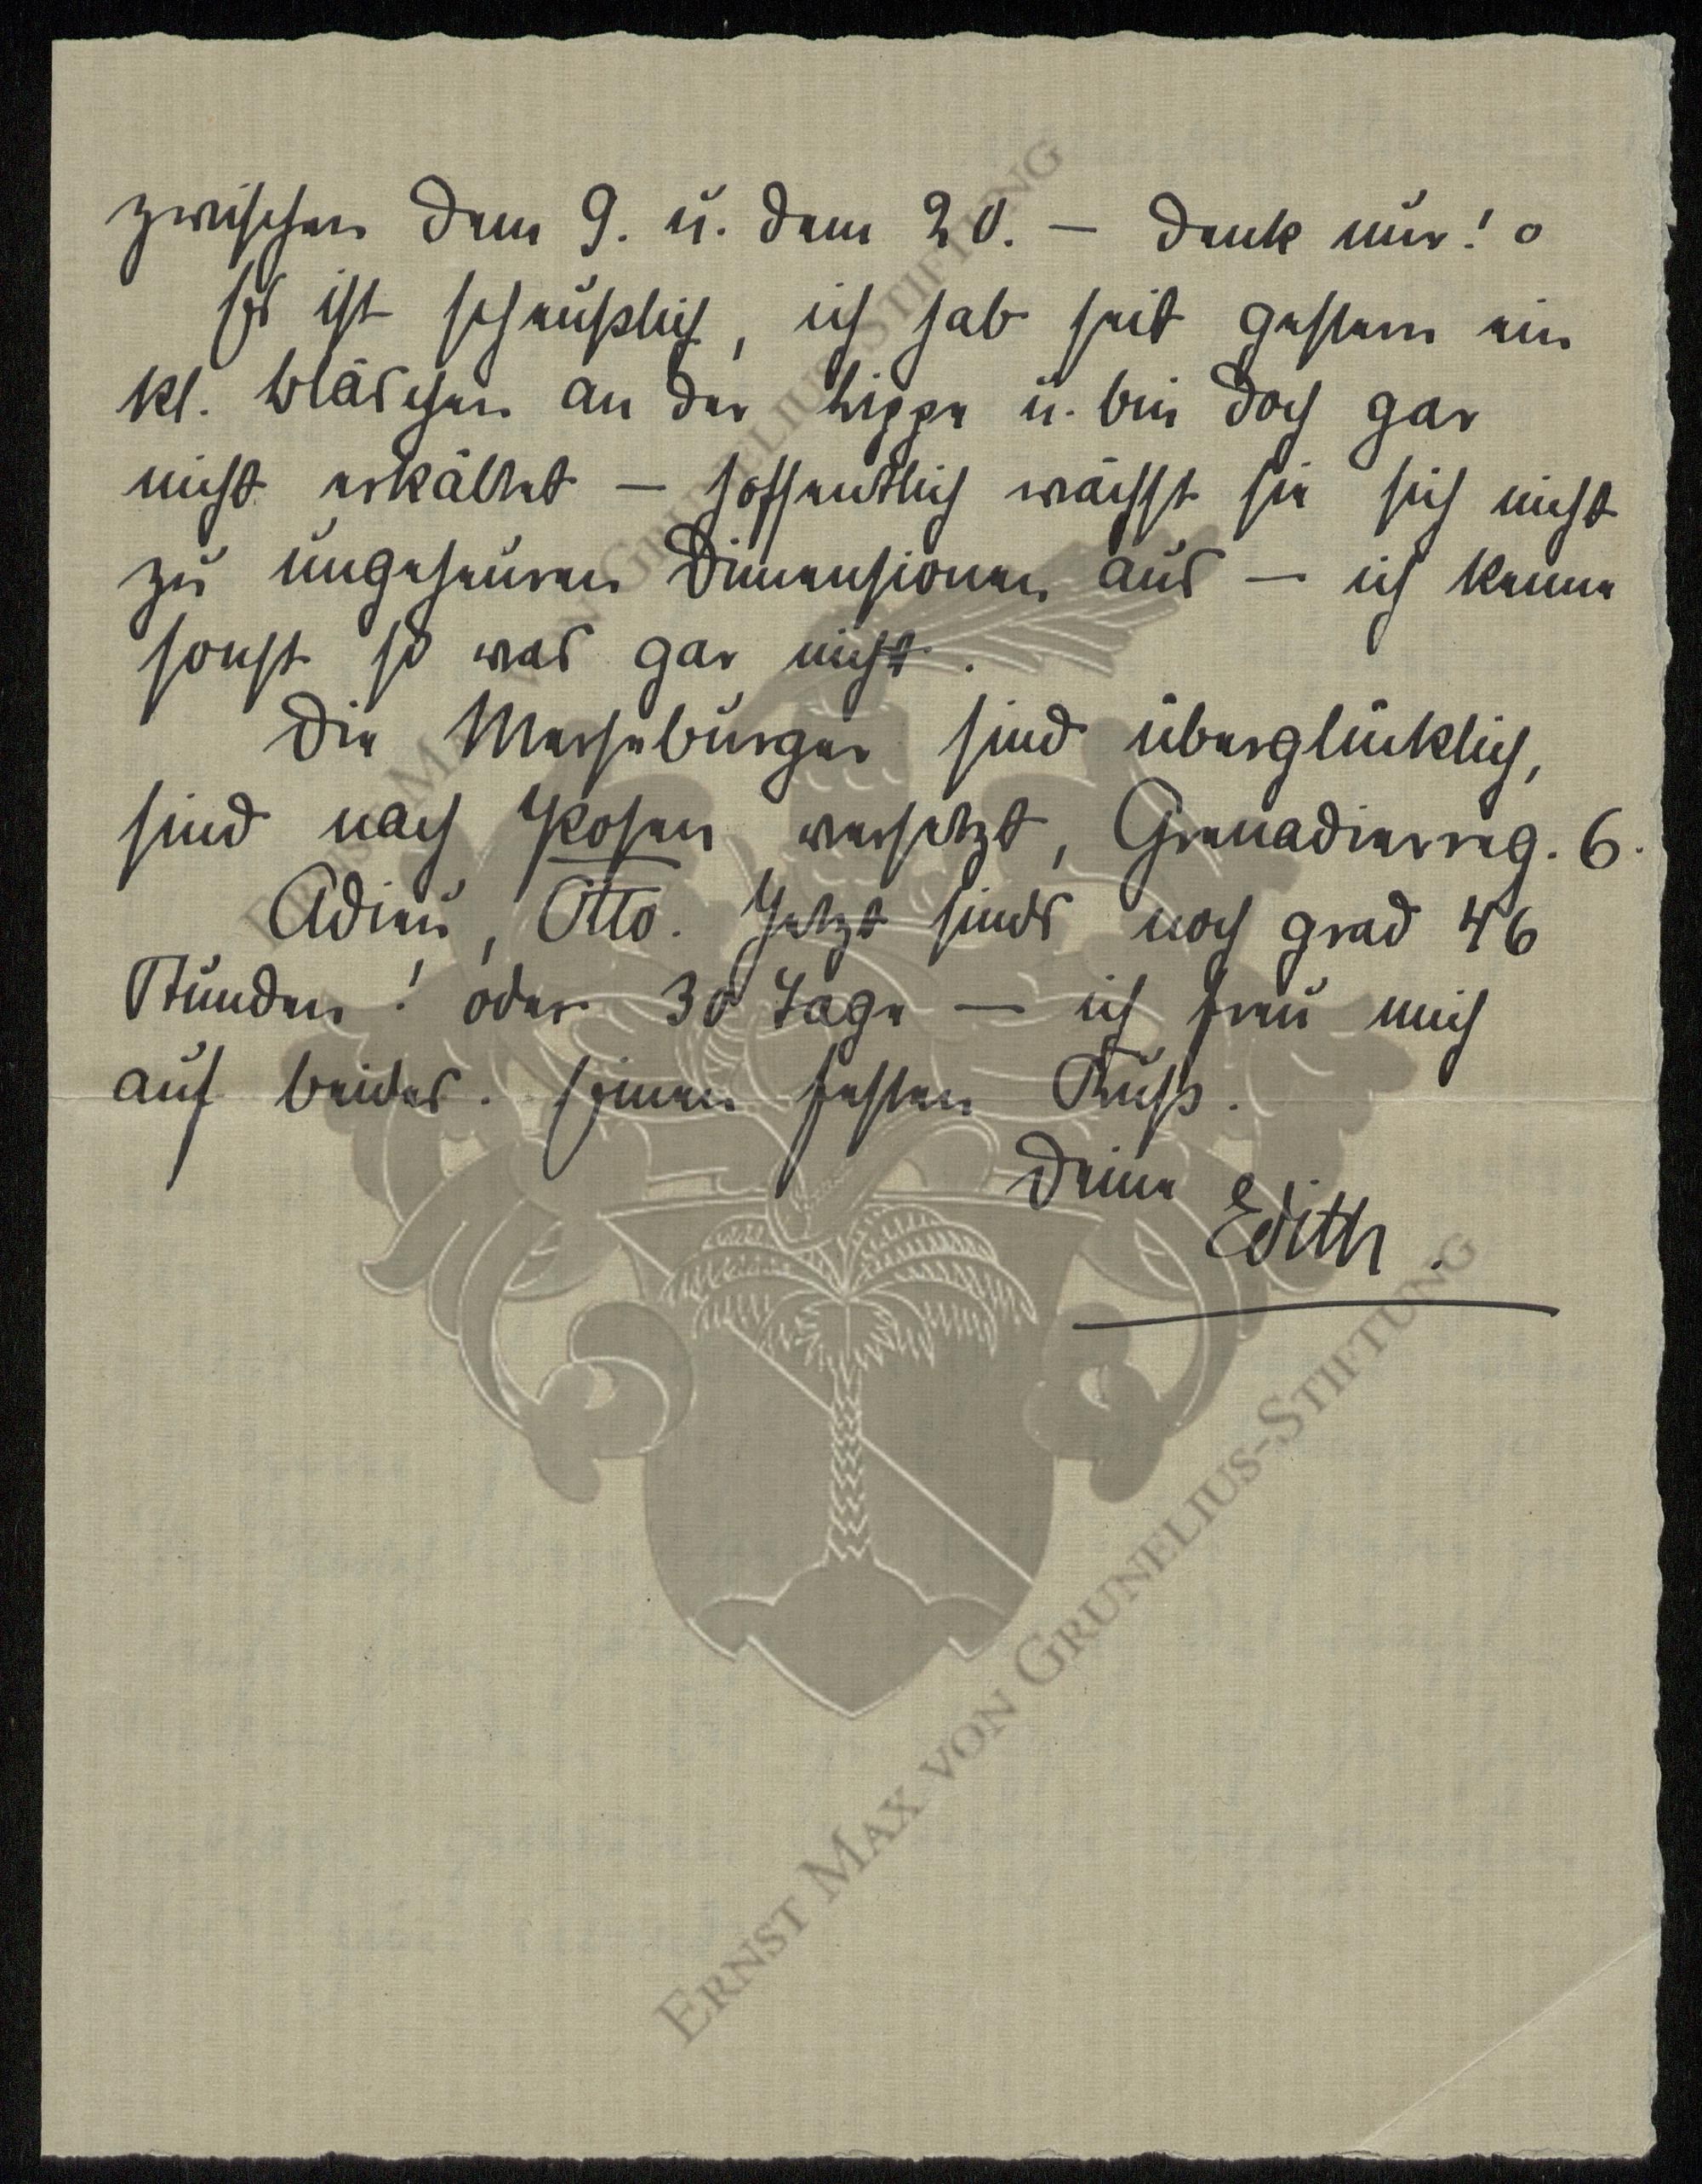 zwischen dem 9. u. dem 20. — denk nur! o
Es ist scheußlich, ich hab seit gestern ein
kl. Bläschen an der Lippe u. bin doch gar
nicht erkältet — hoffentlich wächst sie sich nicht
zu ungeheuren Dimensionen aus — ich kenne
sonst so was gar nicht.
Die Merseburger sind überglücklich,
sind nach Posen versetzt, Grenadierreg. 6.
Adieu, Otto. Jetzt sinds noch grad 46
Stunden! oder 30 Tage — ich freu mich
auf beides. Einen festen Kuß.
Deine
Edith.
ERNST MAX VON GRUNELIUS-STIFTUNG
ERNST MAX VON GRUNELIUS-STIFTUNG